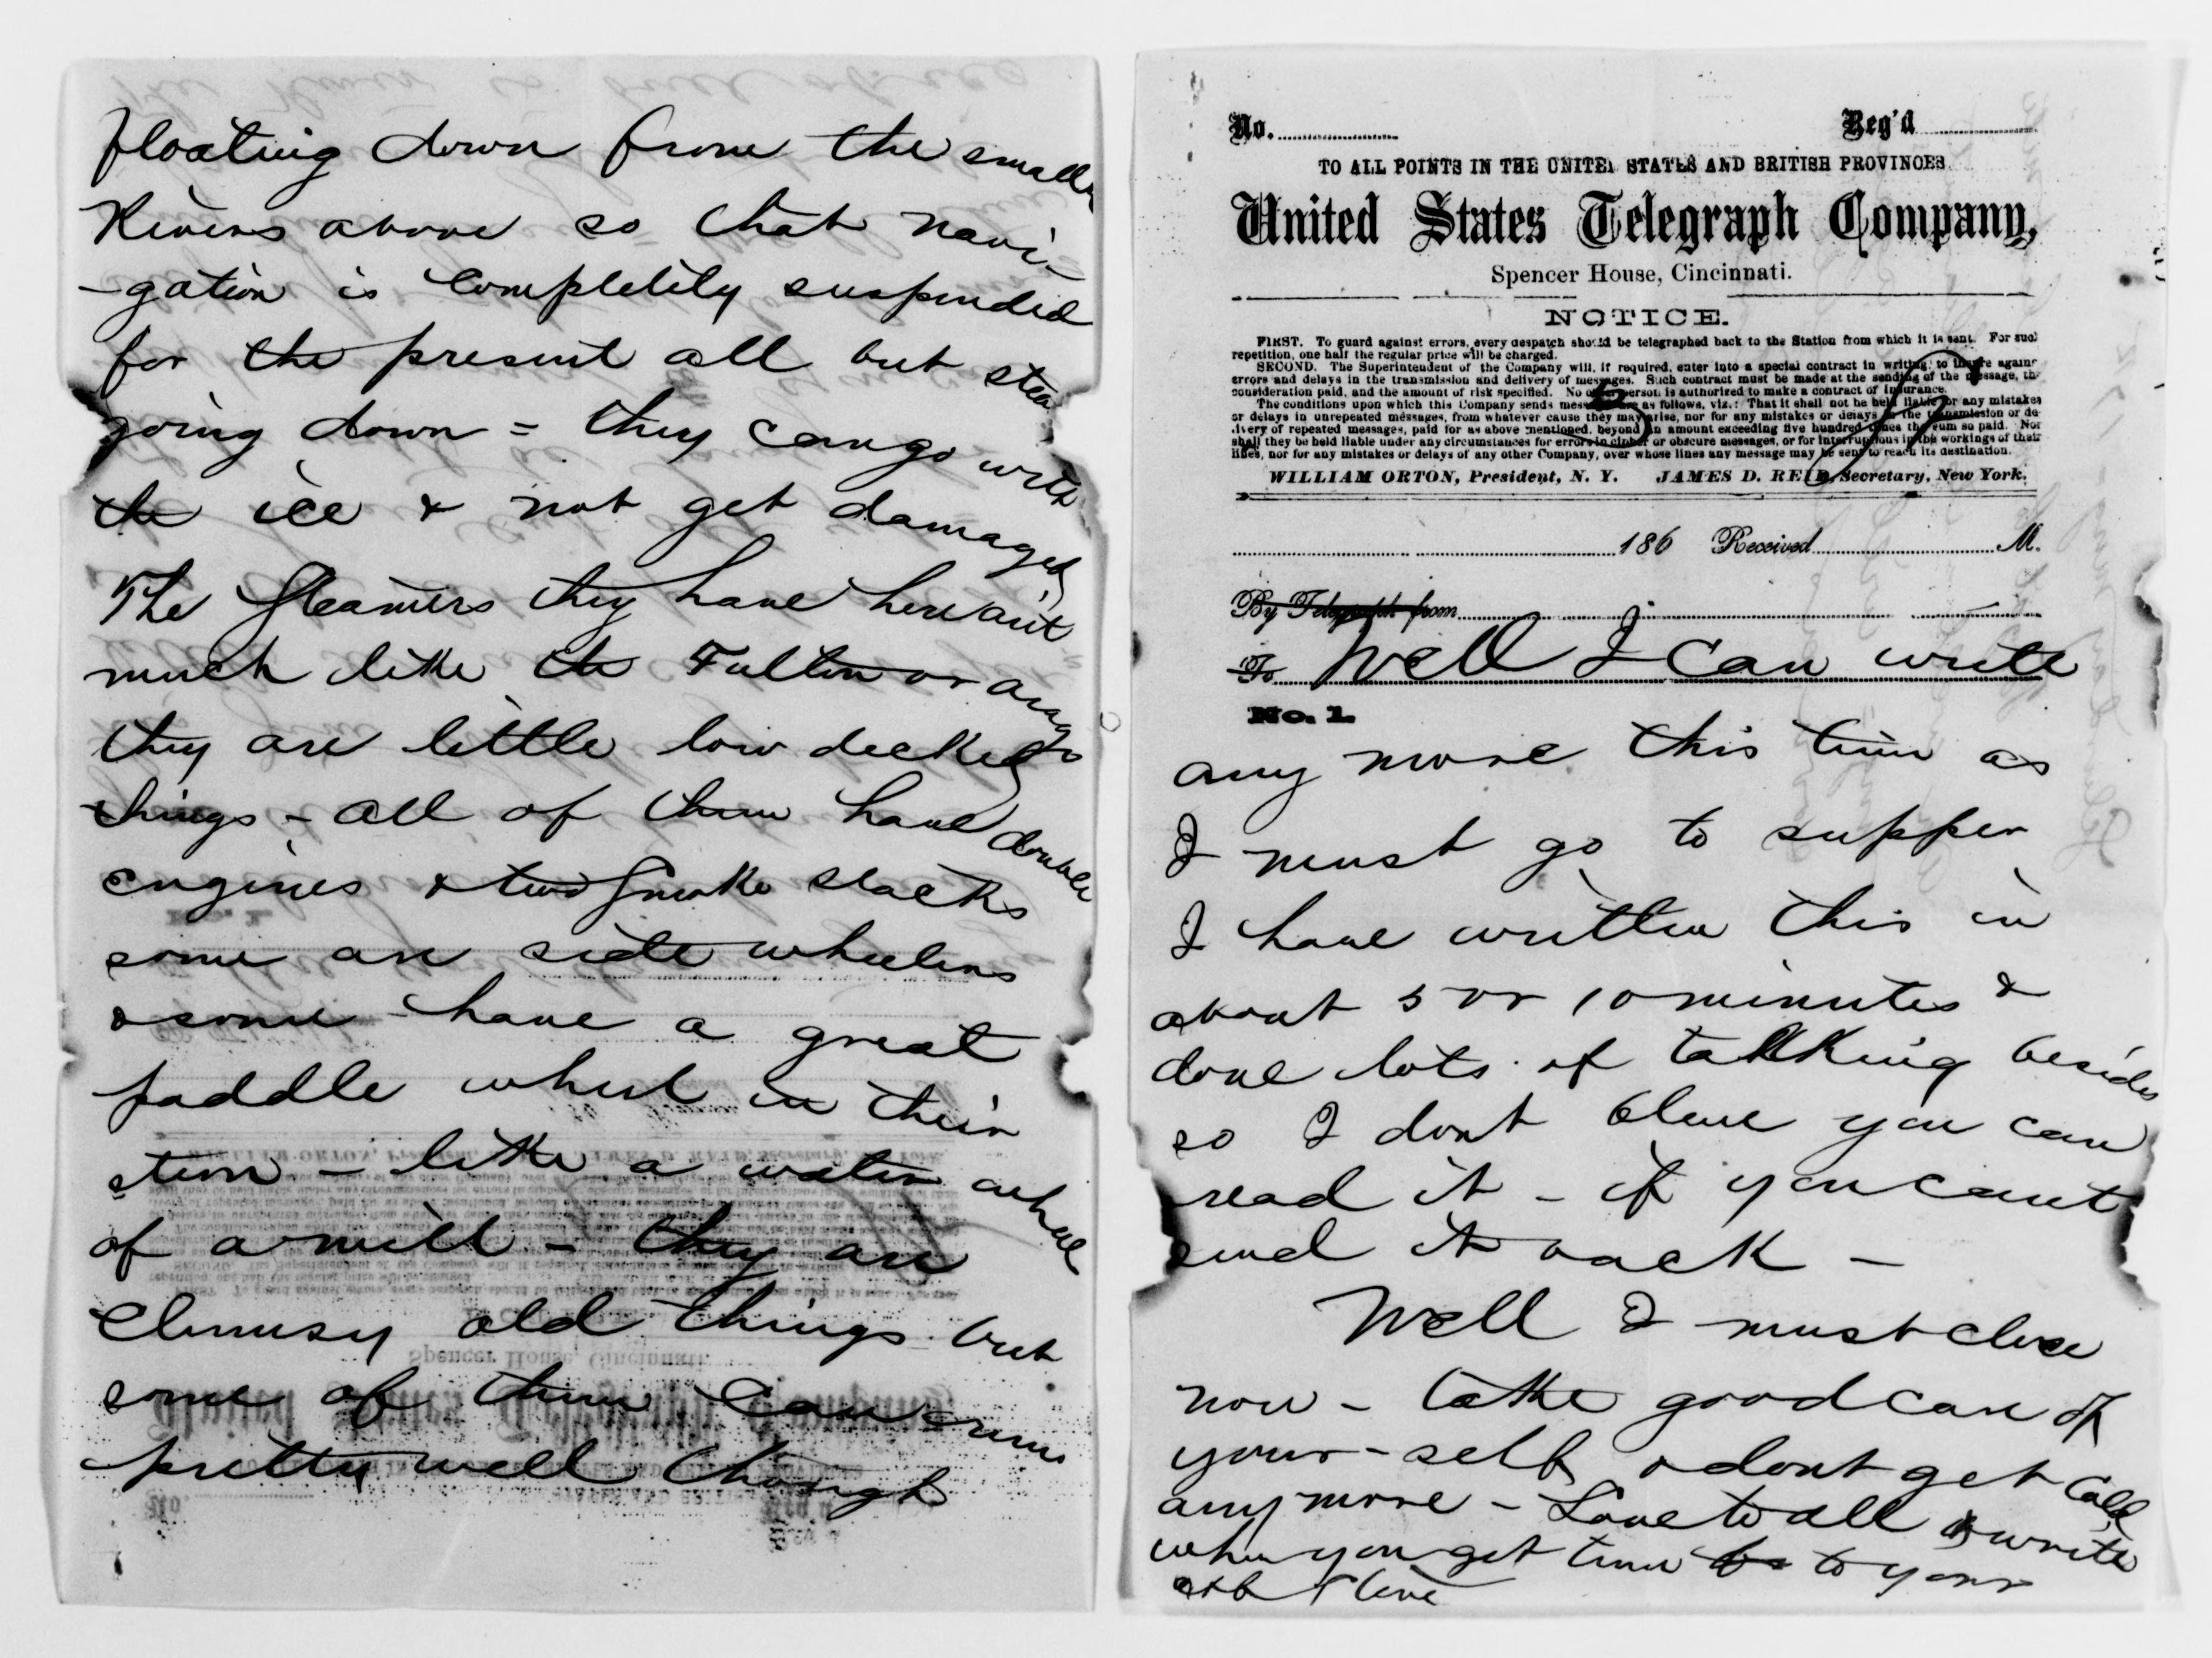 floating down from the smaller
Rivers above so that navi-
-gation is completily suspended
for the present all but stea
going down = they can go with
the ice & not get damaged
The Steamers they have here aint
much like the Fulton or arago
they are little low decked
things - all of them have double
engines & two Smoke stacks
some are side wheelers
& some have a great
paddle wheel in their
stern - like a water wheel
of a mill - they are
clumsy old things but
some of them can run
pretty well though
No. Rec'd
TO ALL POINTS IN THE UNITED STATES AND BRITISH PROVINCES
United States Telegraph Company,
Spencer House, Cincinnati.
NOTICE.
FIRST. To guard against errors, every despatch should be telegraphed back to the Station from which it is sent. For such
repetition, one half the regular price will be charged.
SECOND. The Superintendent of the Company will, if required, enter into a special contract in writing, to insure agains
errors and delays in the transmission and delivery of messages. Such contract must be made at the sending of the message, the
consideration paid, and the amount of risk specified. No other person is authorized to make a contract of Insurance.
The conditions upon which this Company sends messages are as follows, viz.: That it shall not be held liable for any mistakes
or delays in unrepeated messages, from whatever cause they may arise, nor for any mistakes or delays in the transmission or de-
livery of repeated messages, paid for as above mentioned, beyond an amount exceeding five hundred times the sum so paid. Nor
shall they be held liable under any circumstances for errors in cipher or obscure messages, or for interruptions in the workings of their
lines, nor for any mistakes or delays of any other Company, over whose lines any message may be sent to reach its destination.
WILLIAM ORTON, President, N. Y. JAMES D. REID, Secretary, New York.
5
186 Received M.
By Telegraph from
To Well I can write
No. 1.
any more this time as
I must go to supper
I have written this in
about 5 or 10 minutes &
done lots of talking besides
so I dont bleve you can
read it - if you cant
send it back -
Well I must close
now - take good care of
your-self & dont get cold
any more - Love to all & write
when you get time to your